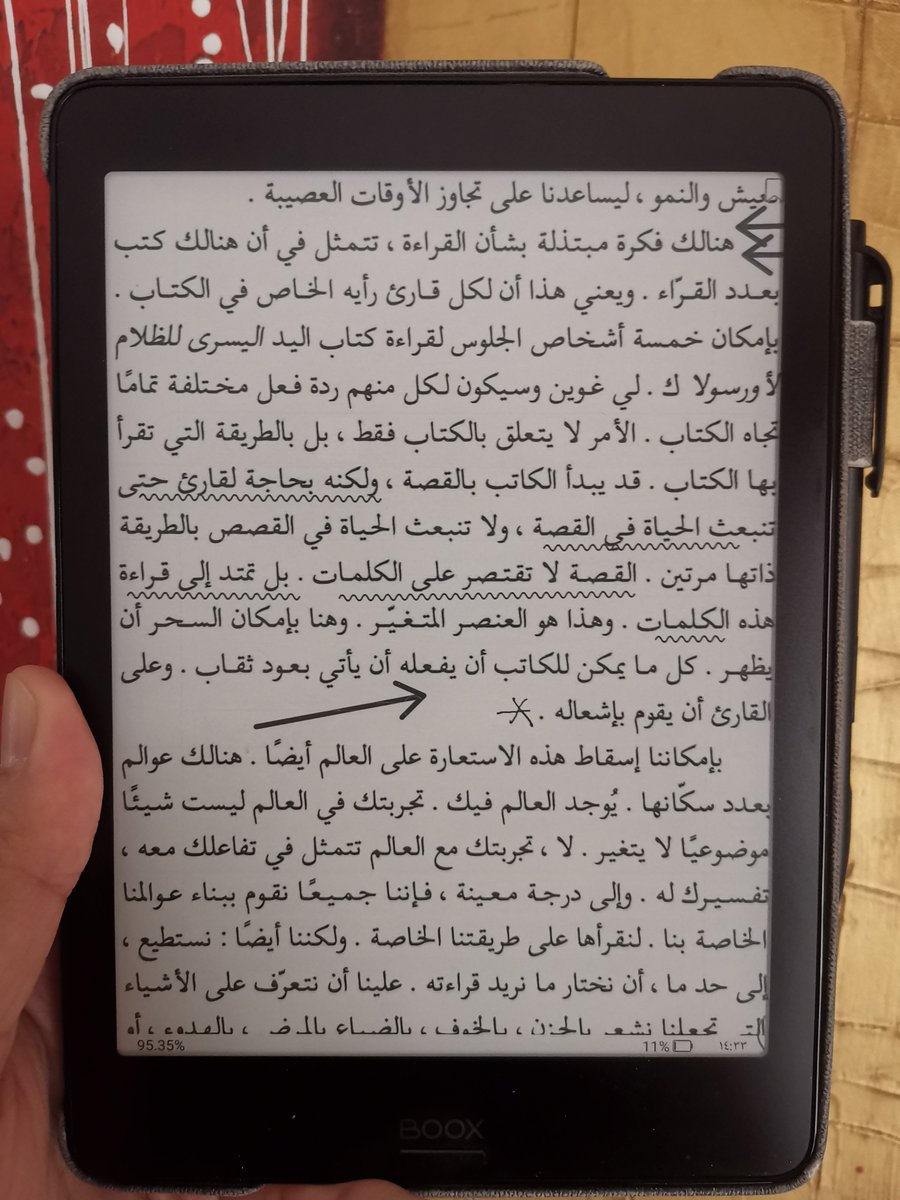 نعيش والنمو ، ليساعدنا على تجاوز الأوقات العصيبة .
هنالك فكرة مبتذلة بشأن القراءة ، تتمثل في أن هنالك كتب
بعدد القرّاء . ويعني هذا أن لكل قارئ رأيه الخاص في الكتاب .
بإمكان خمسة أشخاص الجلوس لقراءة كتاب اليد اليسرى للظلام
لأورسولا ك . لي غوين وسيكون لكل منهم ردة فعل مختلفة تمامًا
تجاه الكتاب . الأمر لا يتعلق بالكتاب فقط ، بل بالطريقة التي تقرأ
بها الكتاب . قد يبدأ الكاتب بالقصة ، ولكنه بحاجة لقارئ حتى
تنبعث الحياة في القصة ، ولا تنبعث الحياة في القصص بالطريقة
ذاتها مرتين . القصة لا تقتصر على الكلمات . بل تمتد إلى قراءة
هذه الكلمات . وهذا هو العنصر المتغيّر . وهنا بإمكان السحر أن
يظهر . كل ما يمكن للكاتب أن يفعله أن يأتي بعود ثقاب . وعلى
القارئ أن يقوم بإشعاله .
بإمكاننا إسقاط هذه الاستعارة على العالم أيضًا . هنالك عوالم
بعدد سكّانها . يُوجد العالم فيك . تجربتك في العالم ليست شيئًا
موضوعيًا لا يتغير . لا ، تجربتك مع العالم تتمثل في تفاعلك معه ،
تفسيرك له . وإلى درجة معينة ، فإننا جميعًا نقوم ببناء عوالمنا
الخاصة بنا . لنقرأها على طريقتنا الخاصة . ولكننا أيضًا : نستطيع ،
إلى حد ما ، أن نختار ما نريد قراءته . علينا أن نتعرّف على الأشياء
التي تجعلنا نشعر بالحزن ، بالخوف ، بالضياع بالمرض ، بالهدوء ، أو
95.35% 11% ١٤:٣٣
BOOX